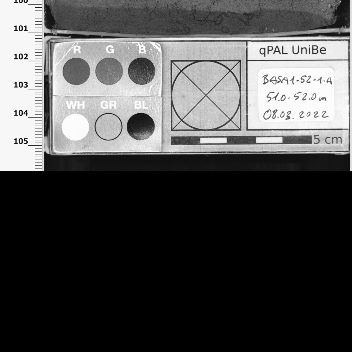 100
101
102
103
104
105
R G B
WH GR BL
qPAL UniBe
BASA1-52-1-A
51.0-52.0m
08.03.2022
5 cm